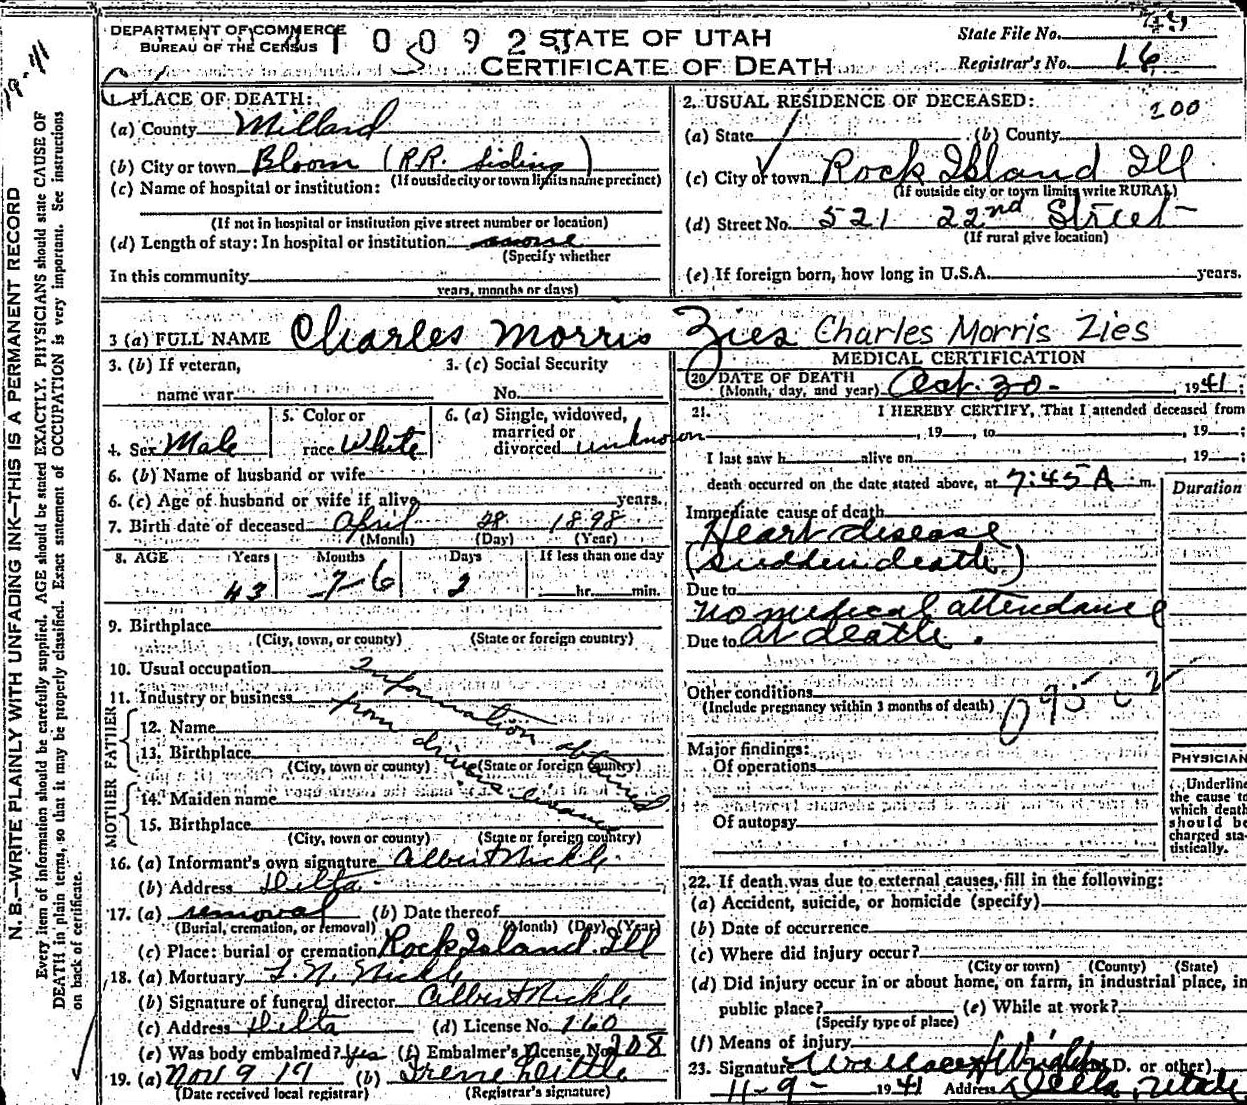 DEPARTMENT OF COMMERCE
BUREAU OF THE CENSUS
1 0 0 9 2
STATE OF UTAH
CERTIFICATE OF DEATH
State File No.
Registrar's No. 16
19 11
N. B.—WRITE PLAINLY WITH UNFADING INK—THIS IS A PERMANENT RECORD
Every item of information should be carefully supplied. AGE should be stated EXACTLY. PHYSICIANS should state CAUSE OF
DEATH in plain terms, so that it may be properly classified. Exact statement of OCCUPATION is very important. See instructions
on back of certificate.
1. PLACE OF DEATH:
(a) County Millard
(b) City or town Bloom (R.R. Siding)
(If outside city or town limits name precinct)
(c) Name of hospital or institution:
(If not in hospital or institution give street number or location)
(d) Length of stay: In hospital or institution
(Specify whether
In this community
years, months or days)
2. USUAL RESIDENCE OF DECEASED:
200
(a) State (b) County
(c) City or town Rock Island Ill.
(If outside city or town limits write RURAL)
(d) Street No. 521 22nd Street
(If rural give location)
(e) If foreign born, how long in U.S.A. years.
3 (a) FULL NAME Charles Morris Zies Charles Morris Zies
3. (b) If veteran,
name war
3. (c) Social Security
No.
4. Sex Male
5. Color or
race White
6. (a) Single, widowed,
married or
divorced unknown
6. (b) Name of husband or wife
6. (c) Age of husband or wife if alive years.
7. Birth date of deceased April 28 1898
(Month) (Day) (Year)
8. AGE Years Months Days If less than one day
43 7-6 2 hr. min.
9. Birthplace
(City, town, or county) (State or foreign country)
10. Usual occupation
11. Industry or business
Information obtained
from drivers license
FATHER
12. Name
13. Birthplace
(City, town or county) (State or foreign country)
MOTHER
14. Maiden name
15. Birthplace
(City, town or county) (State or foreign country)
16. (a) Informant's own signature Albert Nickle
(b) Address Delta
17. (a) removal (b) Date thereof
(Burial, cremation, or removal) (Month) (Day) (Year)
(c) Place: burial or cremation Rock Island Ill
18. (a) Mortuary Nickle
(b) Signature of funeral director Albert Nickle
(c) Address Delta (d) License No. 160
(e) Was body embalmed? Yes (f) Embalmer's License No. 208
19. (a) Nov 9 (b) Irene
(Date received local registrar) (Registrar's signature)
MEDICAL CERTIFICATION
20. DATE OF DEATH
(Month, day, and year) Oct. 30- 1941;
21. I HEREBY CERTIFY, That I attended deceased from
, 19 , to , 19 ;
I last saw h alive on , 19 ;
death occurred on the date stated above, at 7:45 A m.
Duration
Immediate cause of death
Heart disease
(sudden death)
Due to
no medical attendance
Due to at death.
Other conditions
(Include pregnancy within 3 months of death)
095
Major findings:
Of operations
Of autopsy
PHYSICIAN
Underline
the cause to
which death
should be
charged sta-
tistically.
22. If death was due to external causes, fill in the following:
(a) Accident, suicide, or homicide (specify)
(b) Date of occurrence
(c) Where did injury occur?
(City or town) (County) (State)
(d) Did injury occur in or about home, on farm, in industrial place, in
public place? (e) While at work?
(Specify type of place)
(f) Means of injury
23. Signature Wallace Wright (M.D. or other)
11-9- 1941 Address Delta, Utah